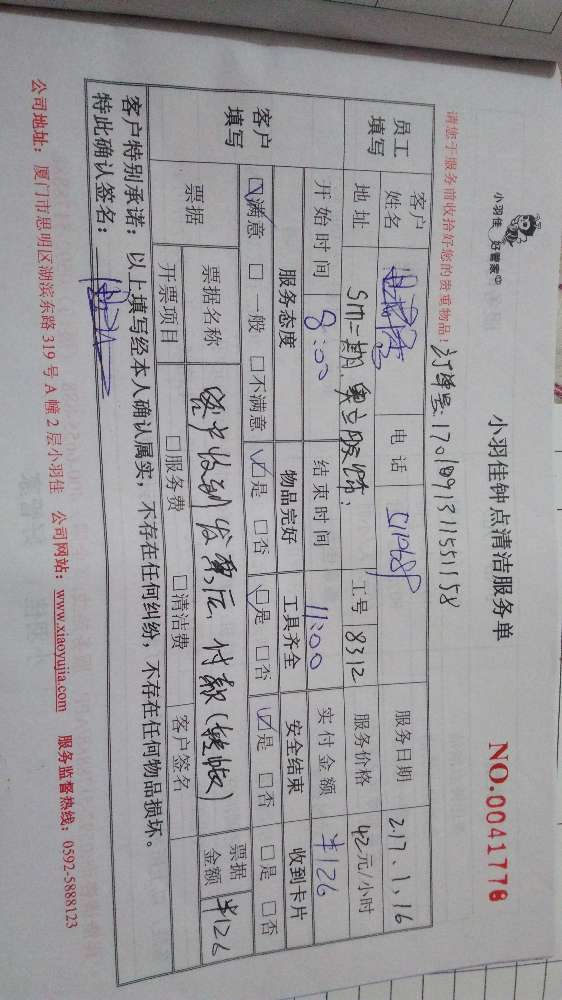 小羽佳 好管家
小羽佳钟点清洁服务单 NO.0041776
请您于服务前收拾好您的贵重物品！ 订单号:17018991311551158
员工填写 客户姓名 电话 服务日期 217.1.16
地址 SM二期 工号 8312 服务价格 42元/小时
开始时间 8:00 结束时间 11:00 实付金额 ¥126
客户填写 服务态度 物品完好 工具齐全 安全结束 收到卡片
☑满意 □一般 □不满意 ☑是 □否 ☑是 □否 ☑是 □否 □是 □否
票据 票据名称 客户收到发票后,付款(转账) 票据金额 ¥126
开票项目 □服务费 □清洁费 客户签名
客户特别承诺：以上填写经本人确认属实，不存在任何纠纷，不存在任何物品损坏。
特此确认签名：
公司地址：厦门市思明区湖滨东路319号A幢2层小羽佳 公司网站：www.xiaoyujia.com 服务监督热线：0592-5888123